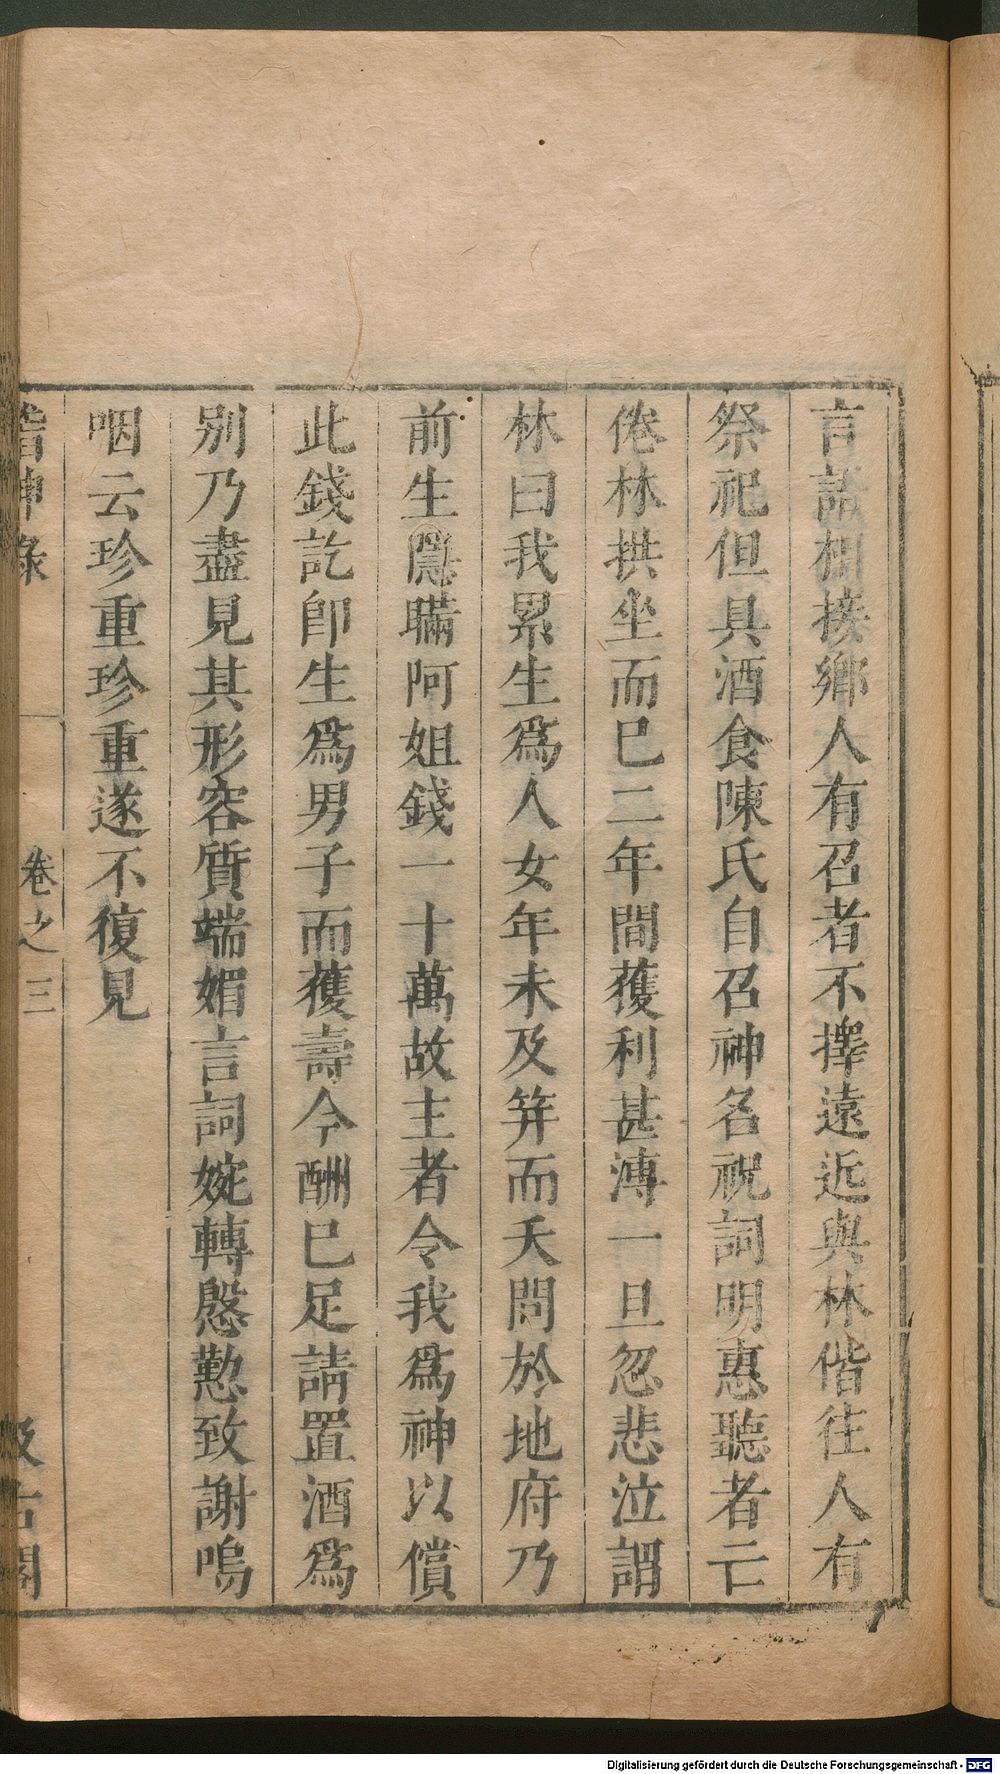 言語相接鄉人有召者不擇遠近與林偕往人有
祭祀但具酒食陳氏自召神名祝詞明惠聽者亡
倦林拱坐而巳二年間獲利甚溥一旦忽悲泣謂
林曰我累生爲人女年未及笄而夭問於地府乃
前生隱瞞阿姐錢一十萬故主者令我爲神以償
此錢訖卽生爲男子而獲壽今酬巳足請置酒爲
别乃盡見其形容質端媚言詞婉轉慇懃致謝嗚
咽云珍重珍重遂不復見
稽神錄
卷之三
汲古閣
Digitalisierung gefördert durch die Deutsche Forschungsgemeinschaft - DFG